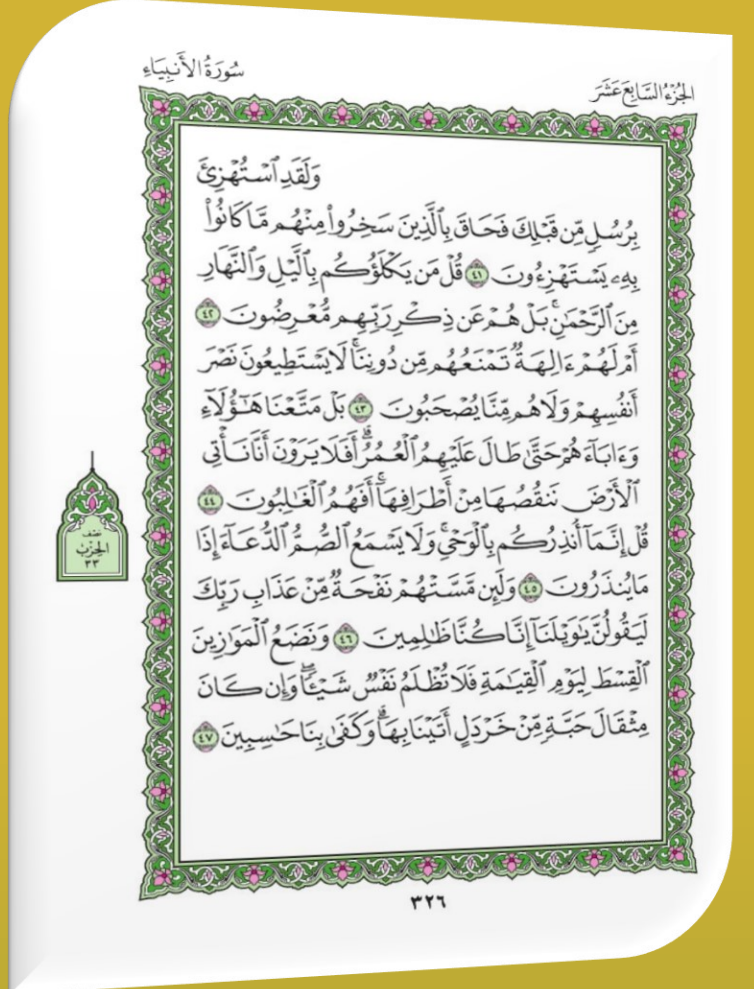 سُورَةُ الأَنبِيَاءِ
الجُزْءُ السَّابِعَ عَشَرَ
وَلَقَدِ ٱسۡتُهۡزِئَ
بِرُسُلٍ مِّن قَبۡلِكَ فَحَاقَ بِٱلَّذِينَ سَخِرُواْ مِنۡهُم مَّا كَانُواْ
بِهِۦ يَسۡتَهۡزِءُونَ ٤١ قُلۡ مَن يَكۡلَؤُكُم بِٱلَّيۡلِ وَٱلنَّهَارِ
مِنَ ٱلرَّحۡمَٰنِۚ بَلۡ هُمۡ عَن ذِكۡرِ رَبِّهِم مُّعۡرِضُونَ ٤٢
أَمۡ لَهُمۡ ءَالِهَةٞ تَمۡنَعُهُم مِّن دُونِنَاۚ لَا يَسۡتَطِيعُونَ نَصۡرَ
أَنفُسِهِمۡ وَلَا هُم مِّنَّا يُصۡحَبُونَ ٤٣ بَلۡ مَتَّعۡنَا هَٰٓؤُلَآءِ
وَءَابَآءَهُمۡ حَتَّىٰ طَالَ عَلَيۡهِمُ ٱلۡعُمُرُۗ أَفَلَا يَرَوۡنَ أَنَّا نَأۡتِي
ٱلۡأَرۡضَ نَنقُصُهَا مِنۡ أَطۡرَافِهَآۚ أَفَهُمُ ٱلۡغَٰلِبُونَ ٤٤
قُلۡ إِنَّمَآ أُنذِرُكُم بِٱلۡوَحۡيِۚ وَلَا يَسۡمَعُ ٱلصُّمُّ ٱلدُّعَآءَ إِذَا
مَا يُنذَرُونَ ٤٥ وَلَئِن مَّسَّتۡهُمۡ نَفۡحَةٞ مِّنۡ عَذَابِ رَبِّكَ
لَيَقُولُنَّ يَٰوَيۡلَنَآ إِنَّا كُنَّا ظَٰلِمِينَ ٤٦ وَنَضَعُ ٱلۡمَوَٰزِينَ
ٱلۡقِسۡطَ لِيَوۡمِ ٱلۡقِيَٰمَةِ فَلَا تُظۡلَمُ نَفۡسٞ شَيۡـٔٗاۖ وَإِن كَانَ
مِثۡقَالَ حَبَّةٖ مِّنۡ خَرۡدَلٍ أَتَيۡنَا بِهَاۗ وَكَفَىٰ بِنَا حَٰسِبِينَ ٤٧
نصف
الحِزْب
٣٣
٣٢٦